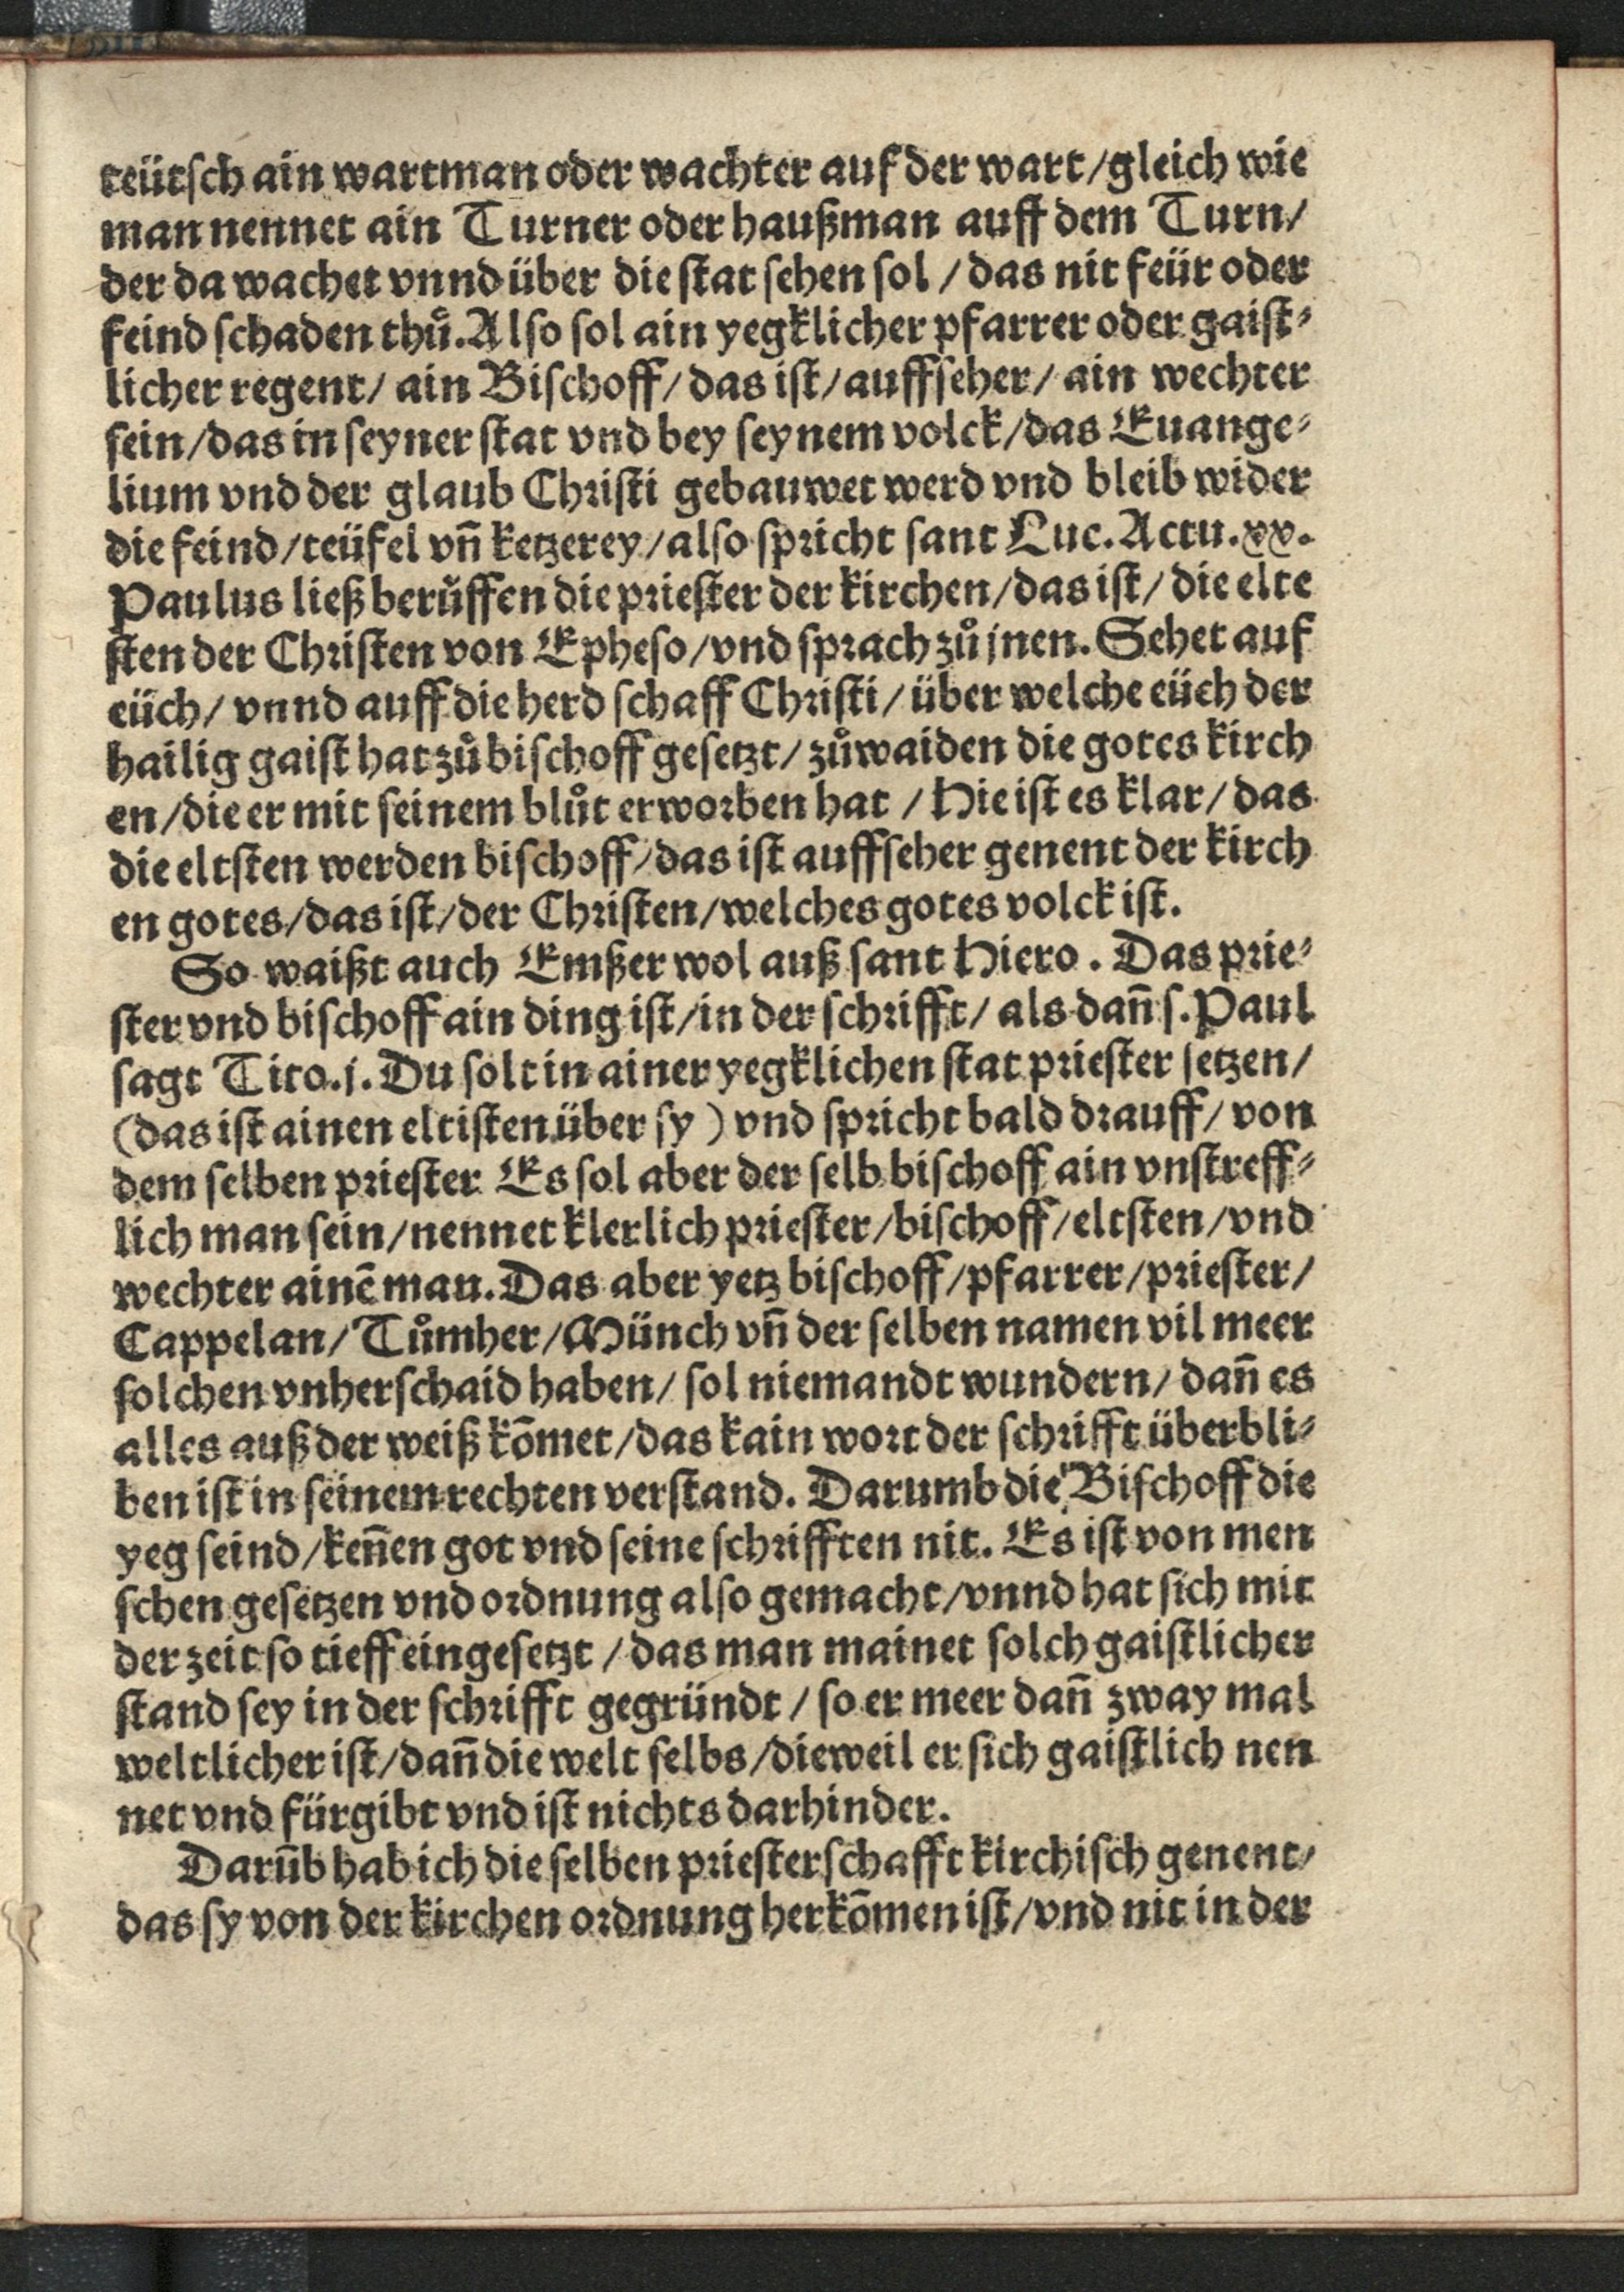 teütſch ain wartman oder wachter auf der wart/gleich wie
man nennet ain Turner oder haußman auff dem Turn/
der da wachet vnnd über die ſtat ſehen ſol / das nit feür oder
feind ſchaden thů. Alſo ſol ain yegklicher pfarrer oder gaiſt⸗
licher regent/ ain Biſchoff/ das iſt/ auffſeher/ ain wechter
ſein/das in ſeyner ſtat vnd bey ſeynem volck/das Euange⸗
lium vnd der glaub Chriſti gebauwet werd vnd bleib wider
die feind/teüfel vn̄ ketzerey/alſo ſpricht ſant Luc. Actu.xx.
Paulus ließ berůffen die prieſter der kirchen/das iſt/ die elte
ſten der Chriſten von Epheſo/vnd ſprach zů jnen. Sehet auf
eüch/ vnnd auff die herd ſchaff Chriſti/ über welche eüch der
hailig gaiſt hat zů biſchoff geſetzt/ zůwaiden die gotes kirch
en/die er mit ſeinem blůt erworben hat / Hie iſt es klar/ das
die eltſten werden biſchoff/das iſt auffſeher genent der kirch
en gotes/das iſt/der Chriſten/welches gotes volck iſt.
So waißt auch Emßer wol auß ſant Hiero. Das prie⸗
ſter vnd biſchoff ain ding iſt/in der ſchrifft/ als dan̄ ſ. Paul
ſagt Tito.j. Du ſolt in ainer yegklichen ſtat prieſter ſetzen/
(das iſt ainen eltiſten über ſy) vnd ſpricht bald drauff/ von
dem ſelben prieſter Es ſol aber der ſelb biſchoff ain vnſtreff⸗
lich man ſein/nennet klerlich prieſter/biſchoff/eltſten/vnd
wechter ainē man. Das aber yetz biſchoff/pfarrer/prieſter/
Cappelan/ Tůmher/Münch vn̄ der ſelben namen vil meer
ſolchen vnherſchaid haben/ ſol niemandt wundern/ dan̄ es
alles auß der weiß kōmet/das kain wort der ſchrifft überbli⸗
ben iſt in ſeinem rechten verſtand. Darumb die Biſchoff die
yeg ſeind/ken̄en got vnd ſeine ſchrifften nit. Es iſt von men
ſchen geſetzen vnd ordnung alſo gemacht/vnnd hat ſich mit
der zeit ſo tieff eingeſetzt / das man mainet ſolch gaiſtlicher
ſtand ſey in der ſchrifft gegründt / ſo er meer dan̄ zway mal
weltlicher iſt/dan̄ die welt ſelbs/dieweil er ſich gaiſtlich nen
net vnd fürgibt vnd iſt nichts darhinder.
Darūb hab ich die ſelben prieſterſchafft kirchiſch genent/
das ſy von der kirchen ordnung herkōmen iſt/vnd nit in der